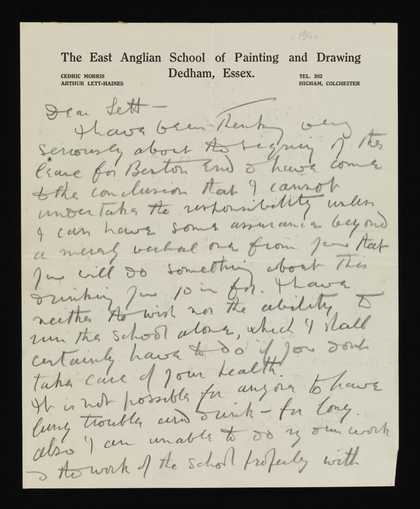 The East Anglian School of Painting and Drawing
CEDRIC MORRIS
ARTHUR LETT-HAINES
Dedham, Essex.
TEL. 302
HIGHAM, COLCHESTER
Dear Lett —
I have been thinking very
seriously about the signing of the
lease for Benton End & have come
to the conclusion that I cannot
undertake the responsibility unless
I can have some assurance beyond
a merely verbal one from you that
you will do something about this
drinking you in for. I have
neither the wish nor the ability to
run the school alone, which I shall
certainly have to do if you dont
take care of your health.
It is not possible for anyone to have
lung trouble and drink — for long.
also I am unable to do my own work
& the work of the school properly with